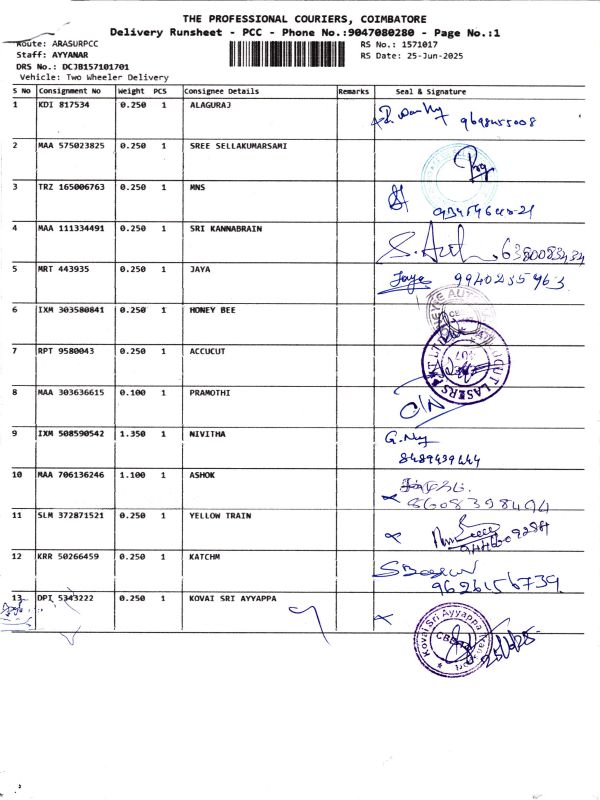 THE PROFESSIONAL COURIERS, COIMBATORE
Delivery Runsheet - PCC - Phone No.:9047080280 - Page No.:1
Route: ARASURPCC
RS No.: 1571017
Staff: AYYANAR
RS Date: 25-Jun-2025
DRS No.: DCJB157101701
Vehicle: Two Wheeler Delivery
S No Consignment No Weight PCS Consignee Details Remarks Seal & Signature
1 KDI 817534 0.250 1 ALAGURAJ
2 MAA 575023825 0.250 1 SREE SELLAKUMARSAMI
3 TRZ 165006763 0.250 1 MNS
4 MAA 111334491 0.250 1 SRI KANNABRAIN
5 MRT 443935 0.250 1 JAYA Jaya 9940235963
6 IXM 303580841 0.250 1 HONEY BEE
7 RPT 9580043 0.250 1 ACCUCUT
8 MAA 303636615 0.100 1 PRAMOTHI
9 IXM 508590542 1.350 1 NIVITHA
8489439444
10 MAA 706136246 1.100 1 ASHOK
8608398494
11 SLM 372871521 0.250 1 YELLOW TRAIN
12 KRR 50266459 0.250 1 KATCHM
9626156739
13 DPI 5343222 0.250 1 KOVAI SRI AYYAPPA
Kovai Sri Ayyappa